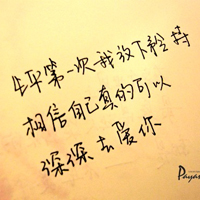 生平第一次我放下矜持
相信自己真的可以
深深去爱你